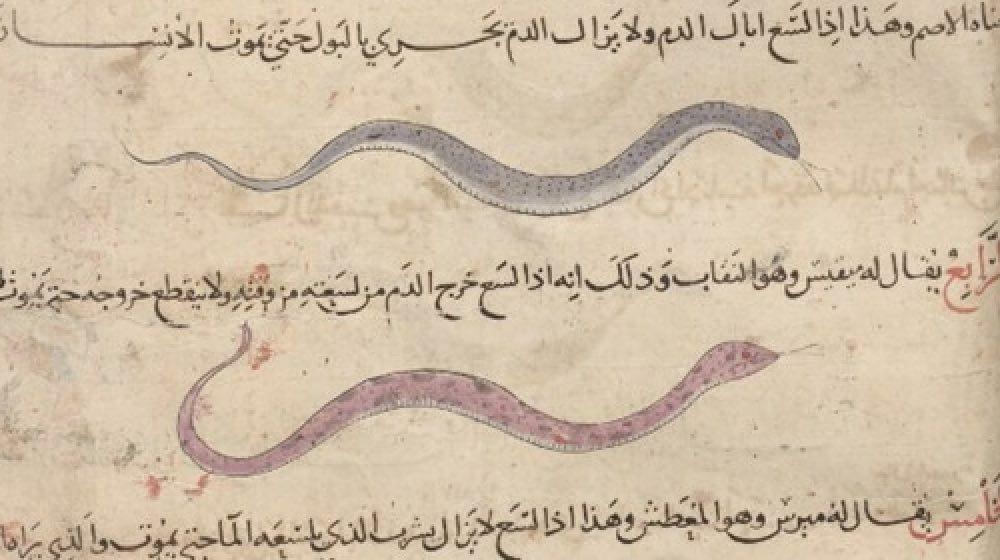 الاصم وهذا اذا لسع ابال الدم ولا يزال الدم يجري بالبول حتى يموت الانسان
الرابع يقال له ميقيس وهو النقاب وذلك انه اذا لسع خرج الدم من لسعته من وقته ولا ينقطع خروجه حتى يموت
الخامس يقال له ميريس وهو المعطش وهذا اذا لسع لا يزال يشرب الذي يلسعه الماء حتى يموت والذي يراها